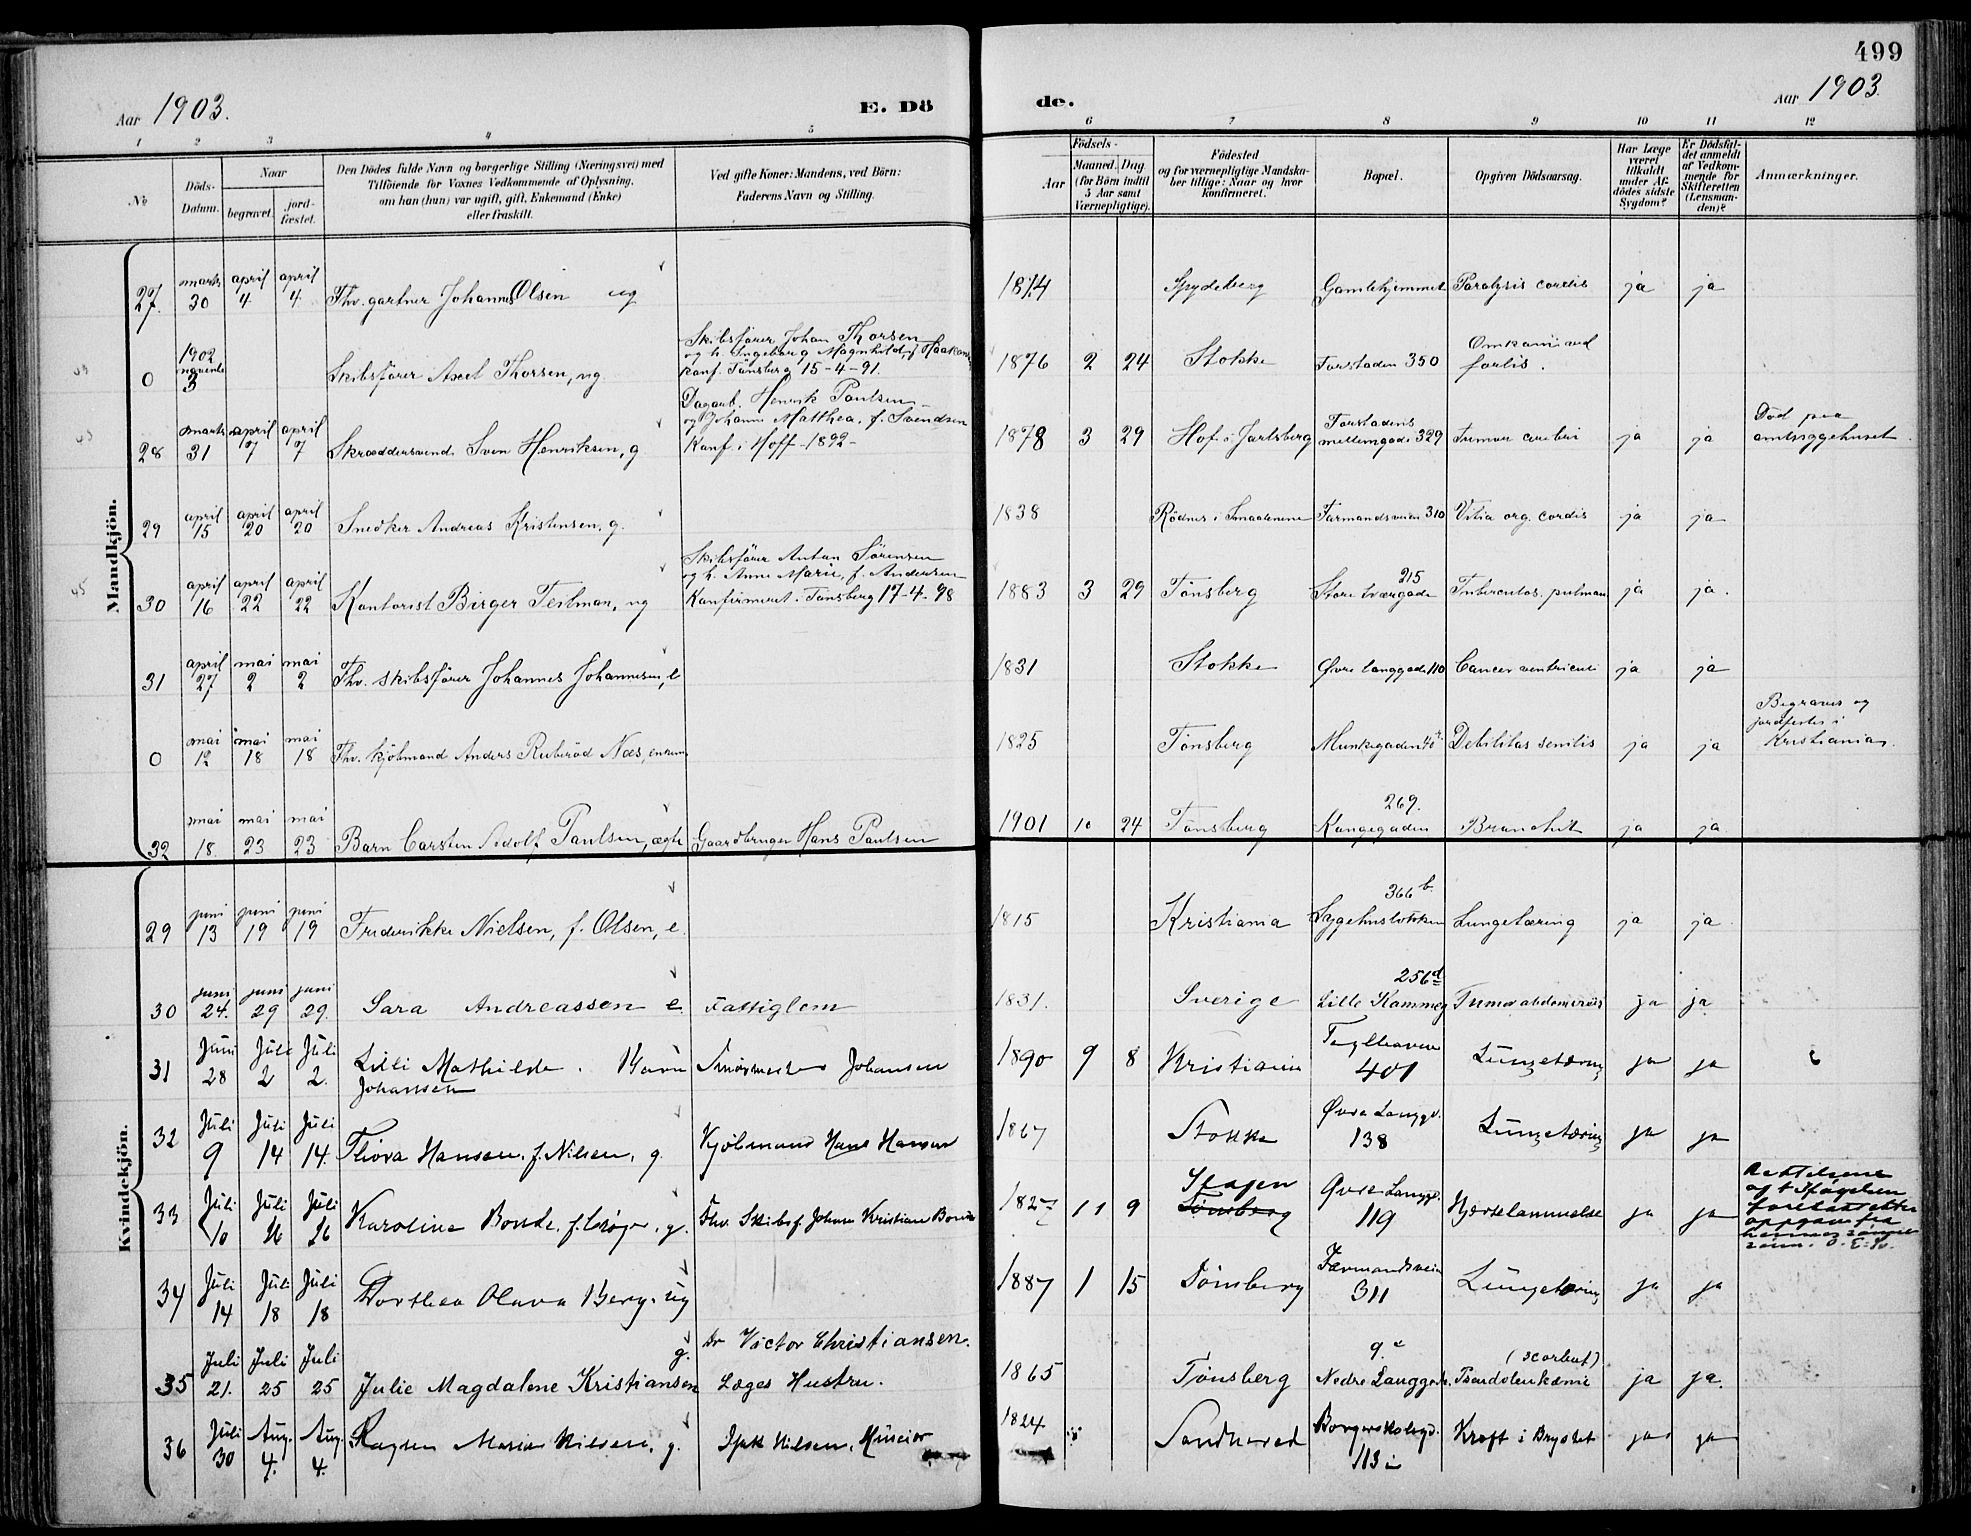 499
Aar 1903.
E. Dö
de.
Aar 1903.
1 2 3 4 5 6 7 8 9 10 11 12
No
Döds-
Datum.
Naar
begravet.
jord-
fæstet.
Den Dödes fulde Navn og borgerlige Stilling (Næringsvei) med
Tilföiende for Voxnes Vedkommende af Oplysning,
om han (hun) var ugift, gift, Enkemand (Enke)
eller fraskilt.
Ved gifte Koner: Mandens, ved Börn:
Faderens Navn og Stilling.
Födsels-
Aar
Maaned. Dag
(for Börn indtil
5 Aar samt
Værnepligtige).
Födested
og for værnepligtige Mandska-
ber tillige: Naar og hvor
konfirmeret.
Bopæl.
Opgiven Dödsaarsag.
Har Læge
været
tilkaldt
under Af-
dödes sidste
Sygdom?
Er Dödsfal-
det anmeldt
af Vedkom-
mende for
Skifteretten
(Lensman-
den)?
Anmærkninger.
Mandkjön.
27. marts 30 april 4 april 4. Thv. gartner Johannes Olsen ug 1874 Spydeberg Gamlehjemmet Paralysis cordis ja ja
0 1902 november 3 Skibsfører Axel Thorsen, ug.
Skibsfører Johan Thorsen
og h. Ingeborg Magnhild, f. Haakons
konf. Tønsberg 15-4-91.
1876 2 24 Stokke Forstaden 350 Omkom ved
forlis.
28 marts 31 april 7 april 7 Skræddersvend Sven Henriksen, g
Dagarb. Henrik Paulsen
og Johanne Matthea, f. Svendsen
Konf. i Hoff - 1892-
1878 3 29 Hof i Jarlsberg Forstadens
mellemgade 329 Tumor cerebri ja ja Död paa
amtssygehuset.
29 april 15 april 20 april 20 Snedker Andreas Kristensen, g. 1838 Rödnes i Smaalenene Farmandsveien 310 Vitia org. cordis ja ja
30 april 16 april 22 april 22 Kontorist Birger Testman, ug
Skibsfører Anton Sørensen
og h. Anne Marie, f. Andersen
Konfirmeret i Tønsberg 17-4-98
1883 3 29 Tønsberg 215
Store tværgade Tuberculos. pulmon ja ja.
31 april 27 mai 2 mai 2 Thv. skibsfører Johannes Johannesen, e 1831 Stokke Øvre langgade 110 Cancer ventriculi ja ja
0 mai 12 mai 18 mai 18 Thv. kjöbmand Anders Ruberöd Næs, enkem 1825 Tønsberg Munkegaden 40 Debilitas senilis ja ja
Begraves og
jordfestes i
Kristiania.
32 mai 18. mai 23 mai 23 Barn Carsten Adolf Paulsen, ægte Gaardbruger Hans Paulsen 1901 10 24 Tønsberg 269.
Kongegaden Bronchit ja ja
Kvindekjön.
29 juni 13 juni 19 juni 19 Frederikke Nielsen, f. Olsen, e. 1815 Kristiania 366 b.
Sygehusløkken Lungetæring ja ja
30 juni 24. juni 29 juni 29. Sara Andreassen e Fattiglem 1831. Sverige 256 d
Lille Kammeg Tumor abdominis ja ja
31 Juni 28 Juli 2 Juli 2. Lilli Mathilde. Barn
Johansen Johansen 1890 9 8 Kristiania 401 Lungetæring ja ja
32 Juli 9 Juli 14 Juli 14. Thora Hansen, f. Nilsen, g. Kjøbmand Hans Hansen 1867 Stokke Øvre Langgd.
138 Lungetæring ja ja
33 Juli 10 Juli 16 Juli 16 Karoline Bonde, f. g. Fhv. Skibsf. Johan Kristian Bonde 1827 11 9 Skagen
Tønsberg Øvre Langgd.
119 Hjertelammelse ja ja
Rettelsene
og tilføielsen
foretaget efter
opgave fra
34 Juli 14 Juli 18 Juli 18 Dorthea Olava Berg, ug 1887 1 15 Tønsberg Farmandsveien
311 Lungetæring ja ja
35 Juli 21. Juli 25 Juli 25 Julie Magdalene Kristiansen g. Dr Victor Christiansen.
Læges Hustru. 1865 Tønsberg 9.
Nedre Langgade. (scorbut)
Pseudoleukæmie ja ja.
36 Juli 30 Aug. 4. Aug. 4. Karen Marie Nilsen, g. Nilsen, 1824 Sandherred Borgerskolegd.
113 Kræft i Brystet ja ja